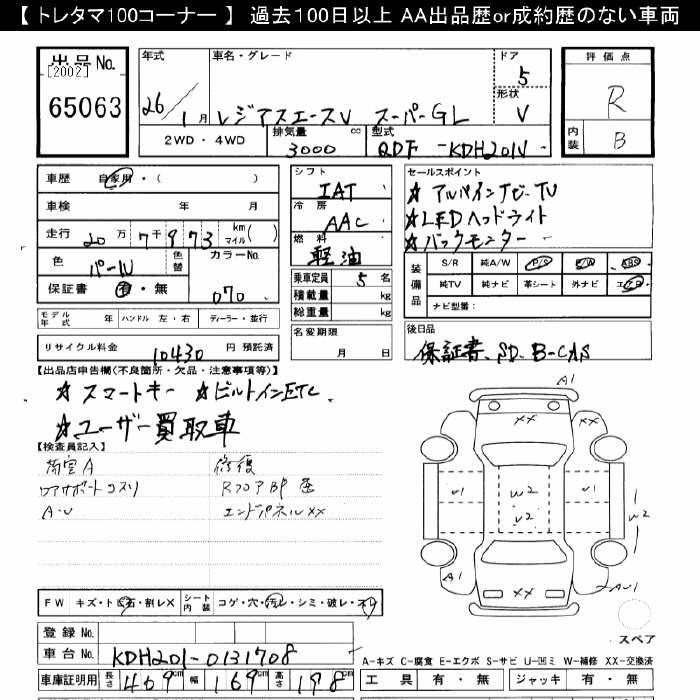 【 トレタマ100コーナー 】 過去100日以上 AA出品歴or成約歴のない車両
出品No.
[2002]
65063
年式 車名・グレード ドア
26/1月 レジアスエースV スーパーGL 5
形状
V
2WD・4WD 排気量 3000 cc 型式 QDF -KDH201V
評価点
R
内装 B
車歴 自家用・( )
車検 年 月
走行 20万7千973 km マイル( )
色 パール 色替 カラーNo. 070
保証書 有・無
シフト
IAT
冷房
AAC
燃料
軽油
乗車定員 5 名
積載量 kg
総重量 kg
セールスポイント
★ アルパインナビーTV
★ LEDヘッドライト
★ バックモニター
装備品 S/R 純A/W P/S P/W ABS
純TV 純ナビ 革シート 外ナビ エアB
ナビ型番:
モデル年式 年 ハンドル 左・右 ディーラー・並行
リサイクル料金 10430 円 預託済
名変期限
月 日
後日品
保証書、SD、B-CAS
【出品店申告欄(不良箇所・欠品・注意事項等)】
★ スマートキー ★ビルトインETC
★ユーザー買取車
【検査員記入】
荷室A 修復
リアサポートコスリ RフロアBP 歪
A・U エンドパネルXX
A1
XX XX
U1 W2 U1
W2 W2
A1 XX A・U1
スペア
FW キズ・トビ石・割レX シート内装 コゲ・穴・汚レ・シミ・破レ・スリ
登録No.
車台No. KDH201-0131708
車庫証明用 長さ 469cm 幅 169cm 高さ 198cm
A-キズ C-腐食 E-エクボ S-サビ U-凹ミ W-補修 XX-交換済
工具 有・無 ジャッキ 有・無